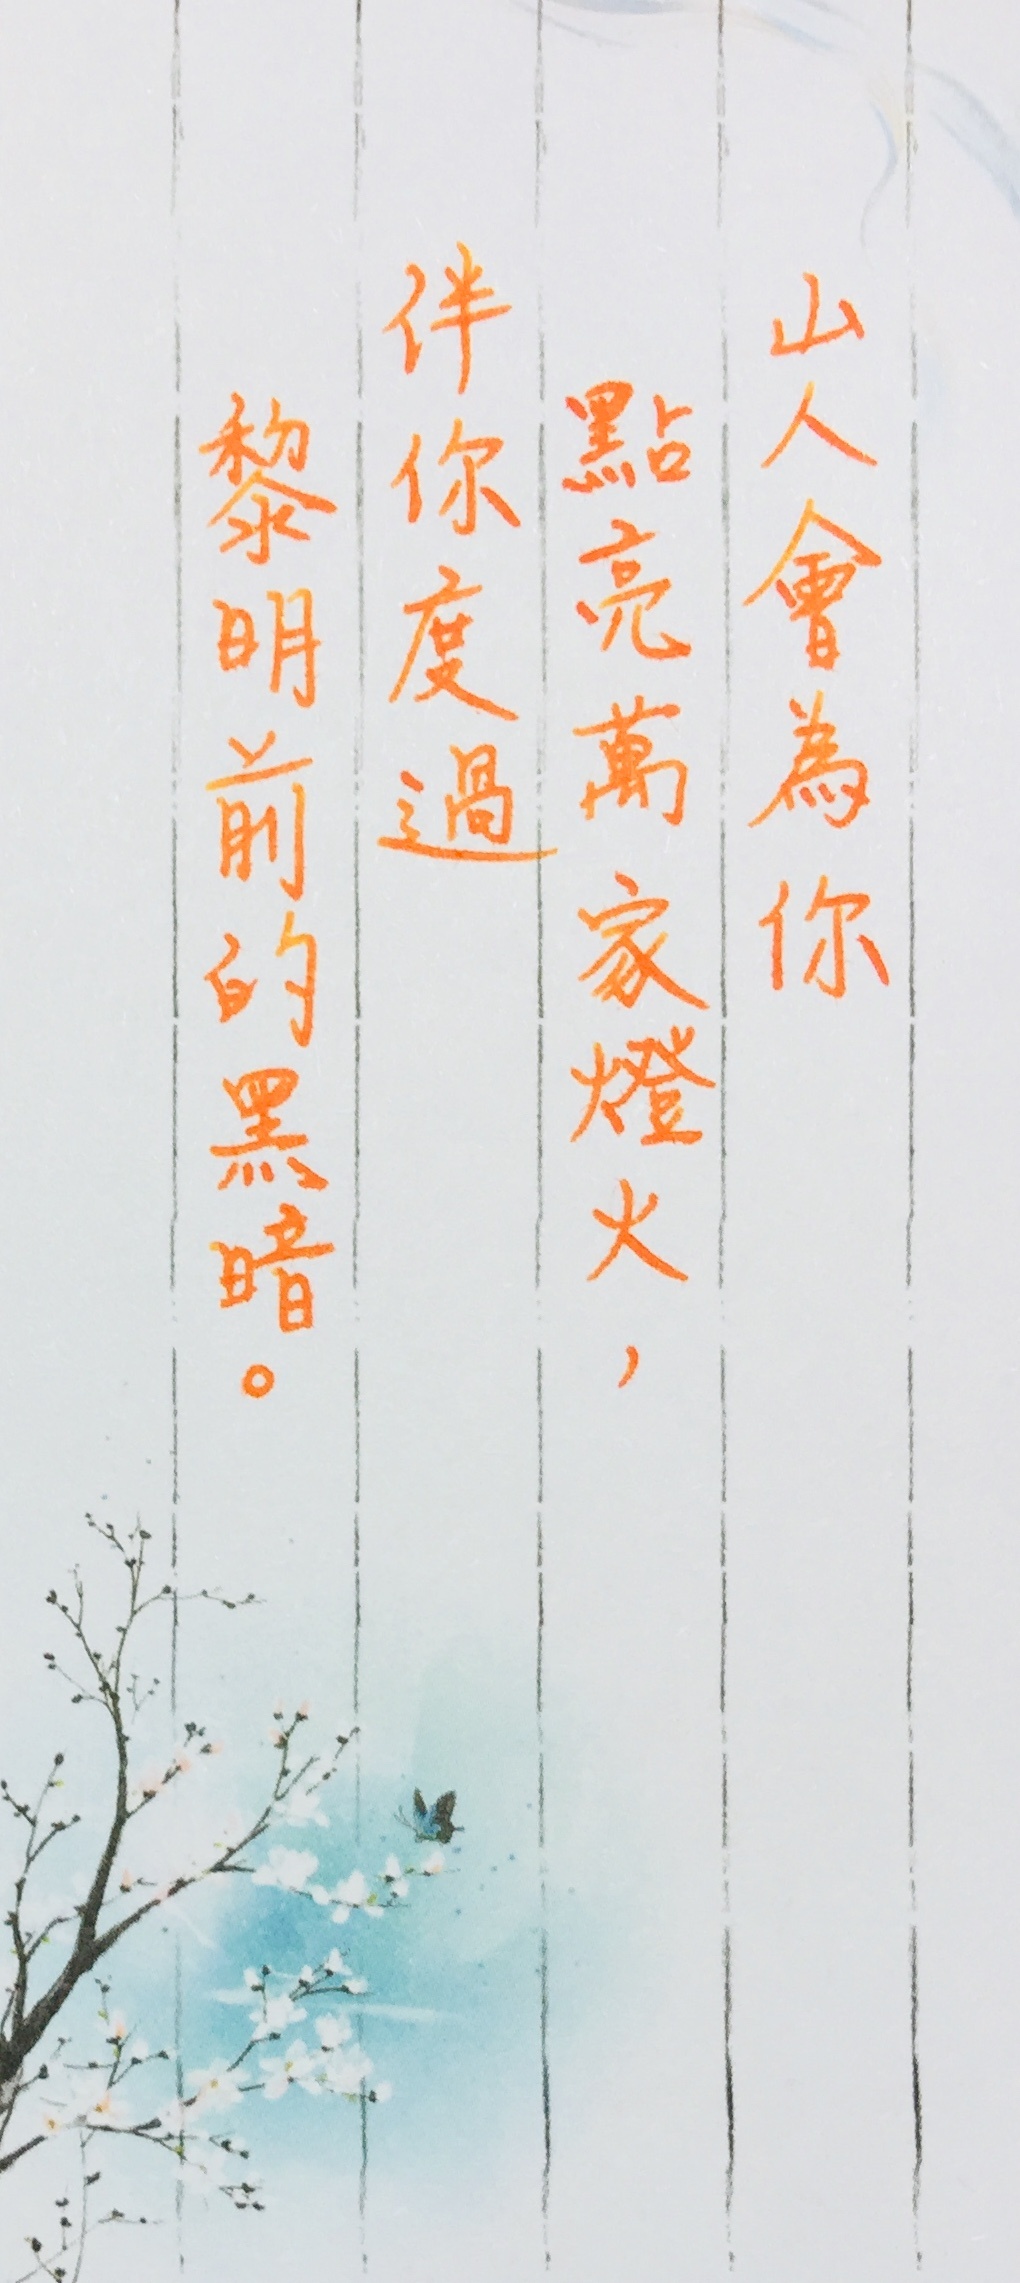 山人會為你
點亮萬家燈火，
伴你度過
黎明前的黑暗。